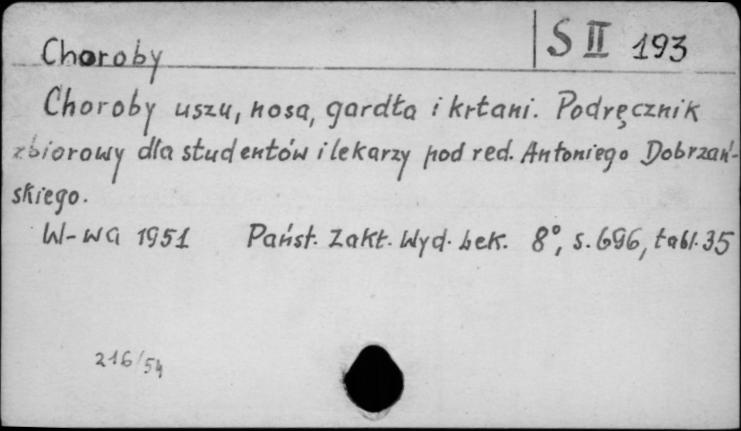 Choroby
S II 193
Choroby uszu, nosa, gardła i krtani. Podręcznik
zbiorowy dla studentów i lekarzy pod red. Antoniego Dobrzań-
skiego.
W-wa 1951 Państ. Zakł. Wyd. Lek. 8°, s. 696, tabl. 35
216/54